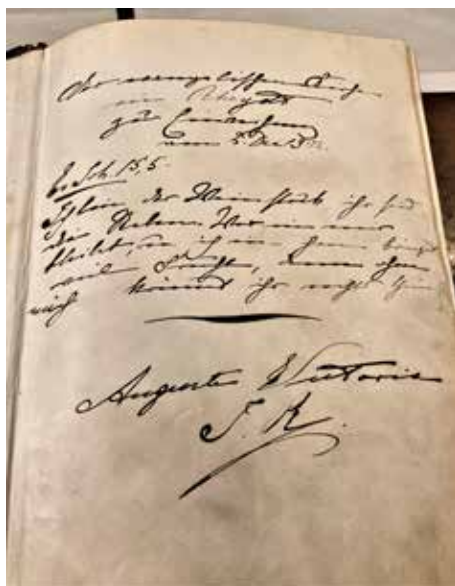 Der evangelischen Kirche
in Rheydt
zur
am 5.
Ev. Joh. 15,5.
Ich bin der Weinstock ihr seid
die Reben. Wer in mir
bleibet, u ich in ihm bringt
viel Frucht, denn ohne
mich könnet ihr nichts thun
Auguste Victoria
I. R.